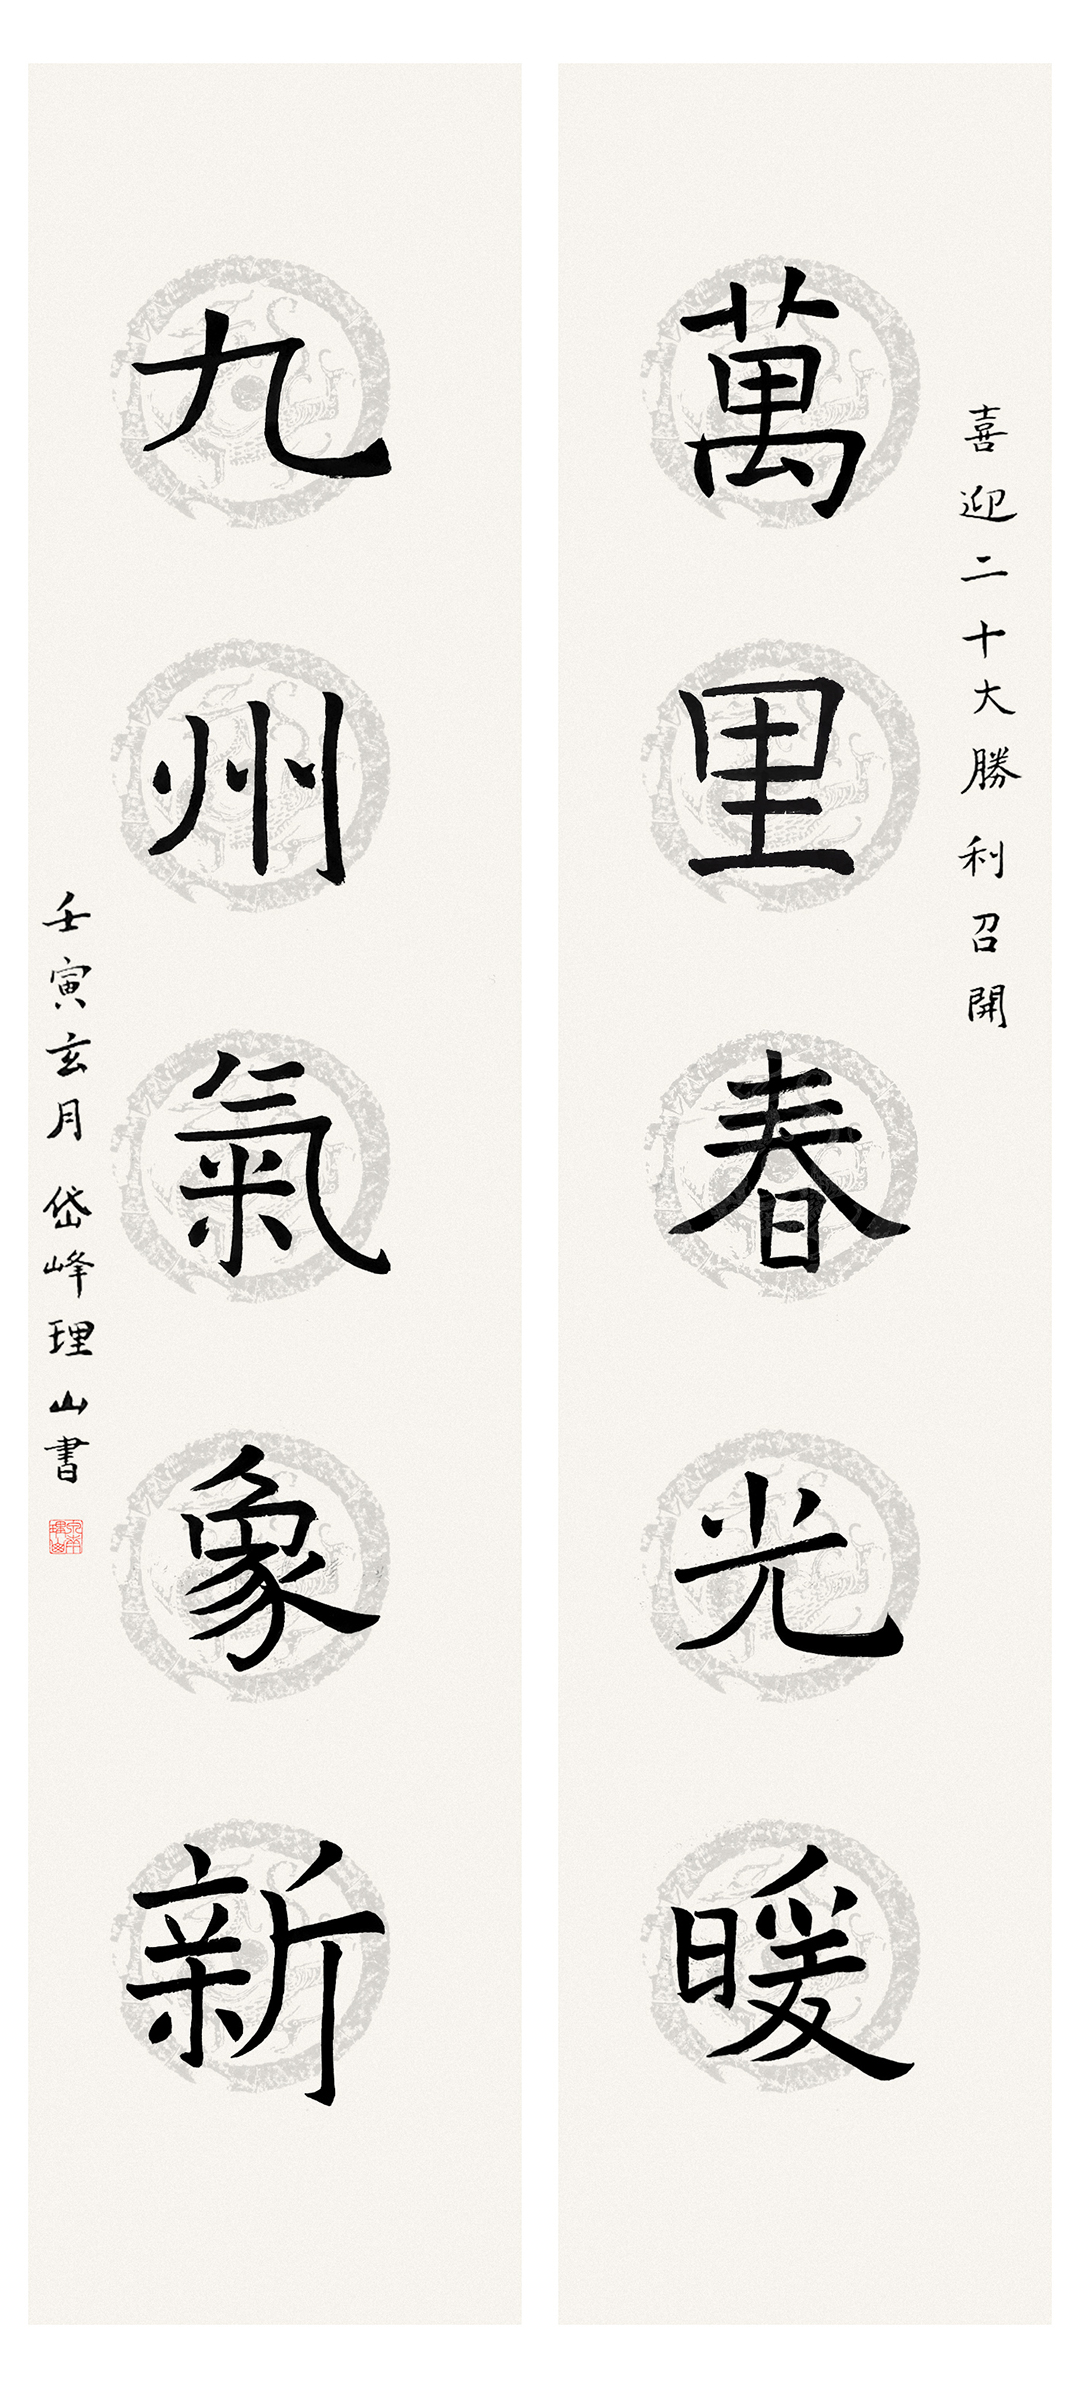 喜迎二十大勝利召開
萬里春光暖
九州氣象新
壬寅玄月岱峰理山書